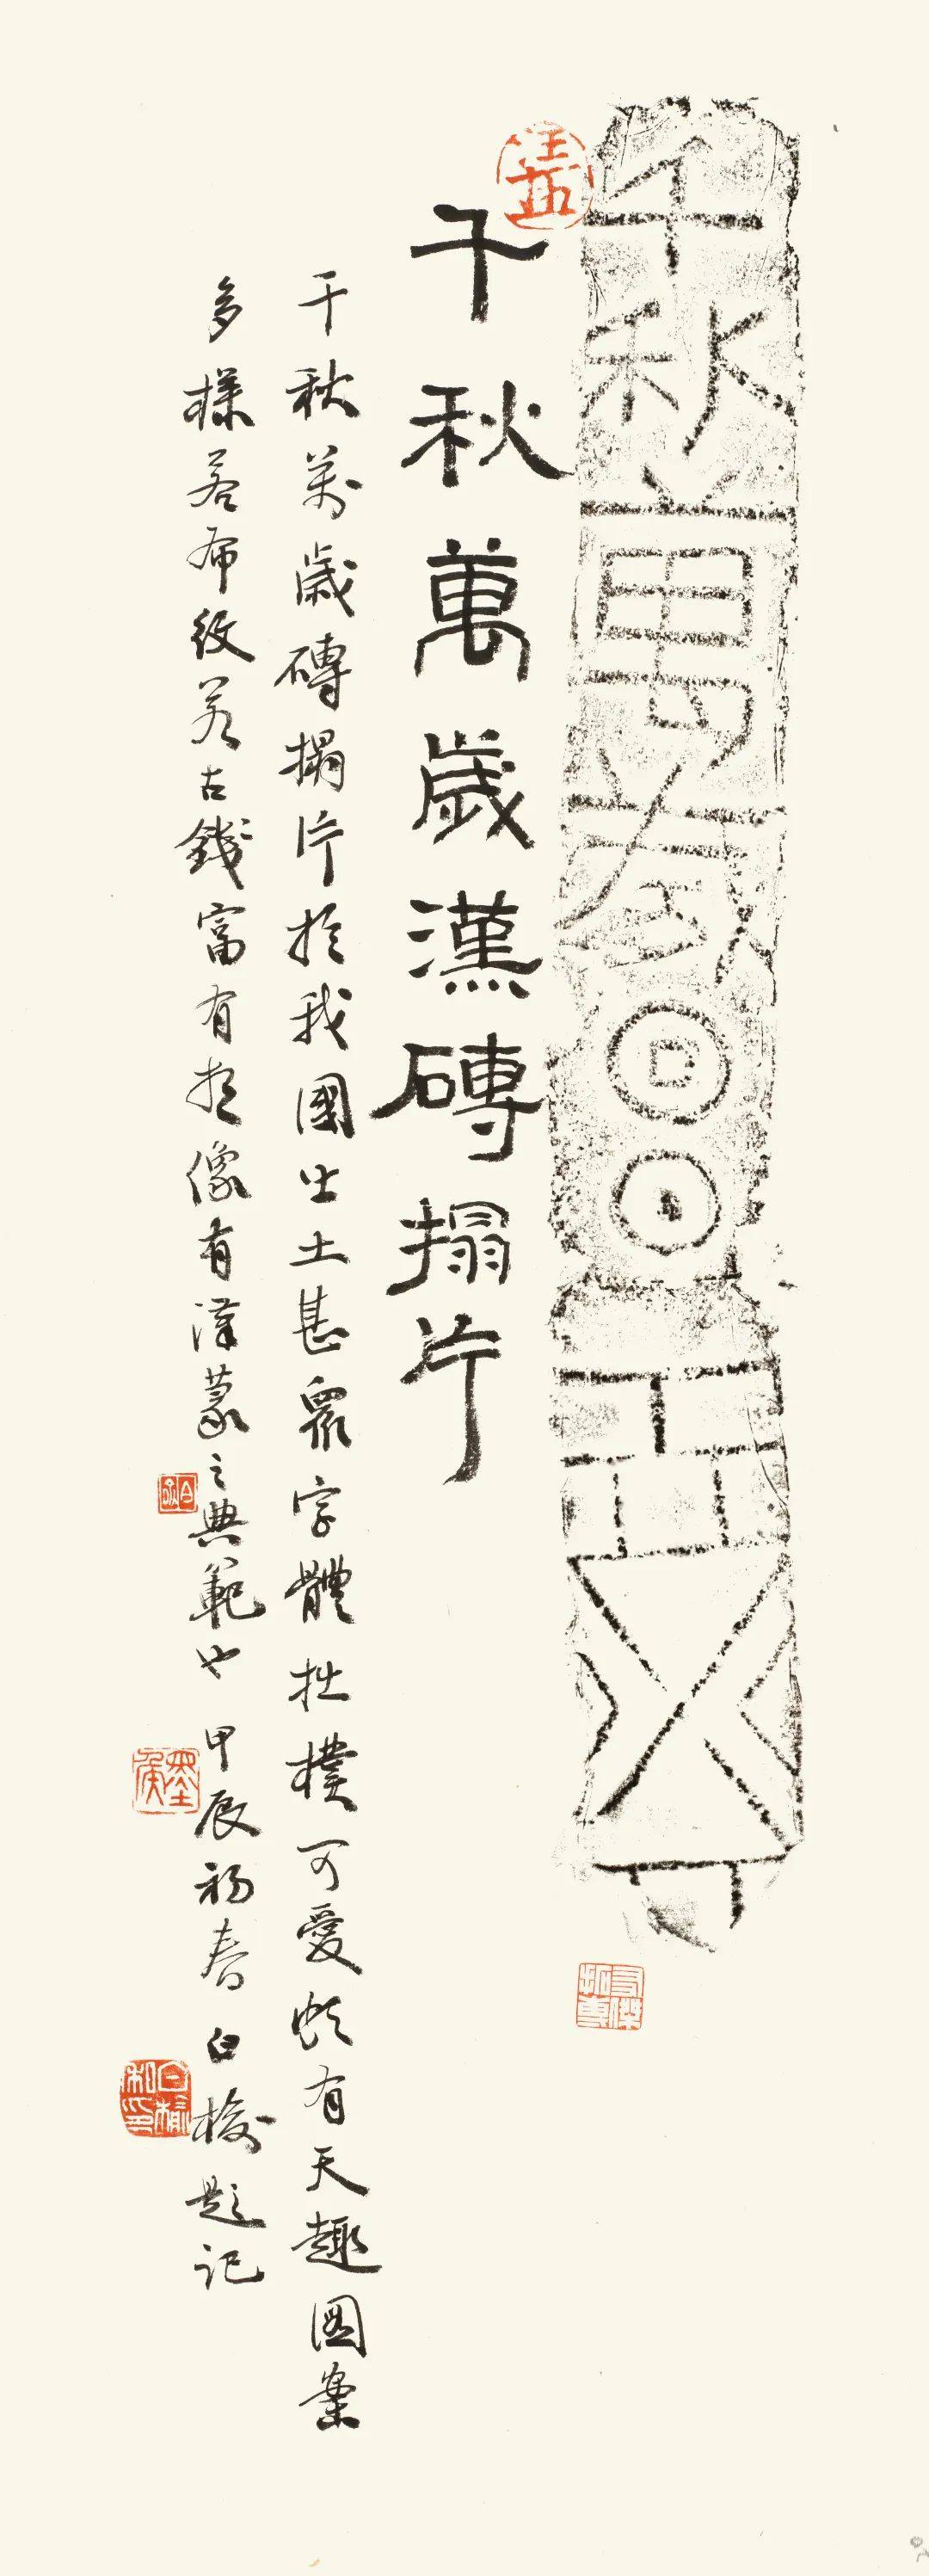 千秋萬歲
千秋萬歲漢磚搨片
千秋萬歲磚搨片於我國出土甚眾字體拙樸可愛頗有天趣圖案
多樣若布紋若古錢富有想像有漢篆之典範也 甲辰初春 白榆題記